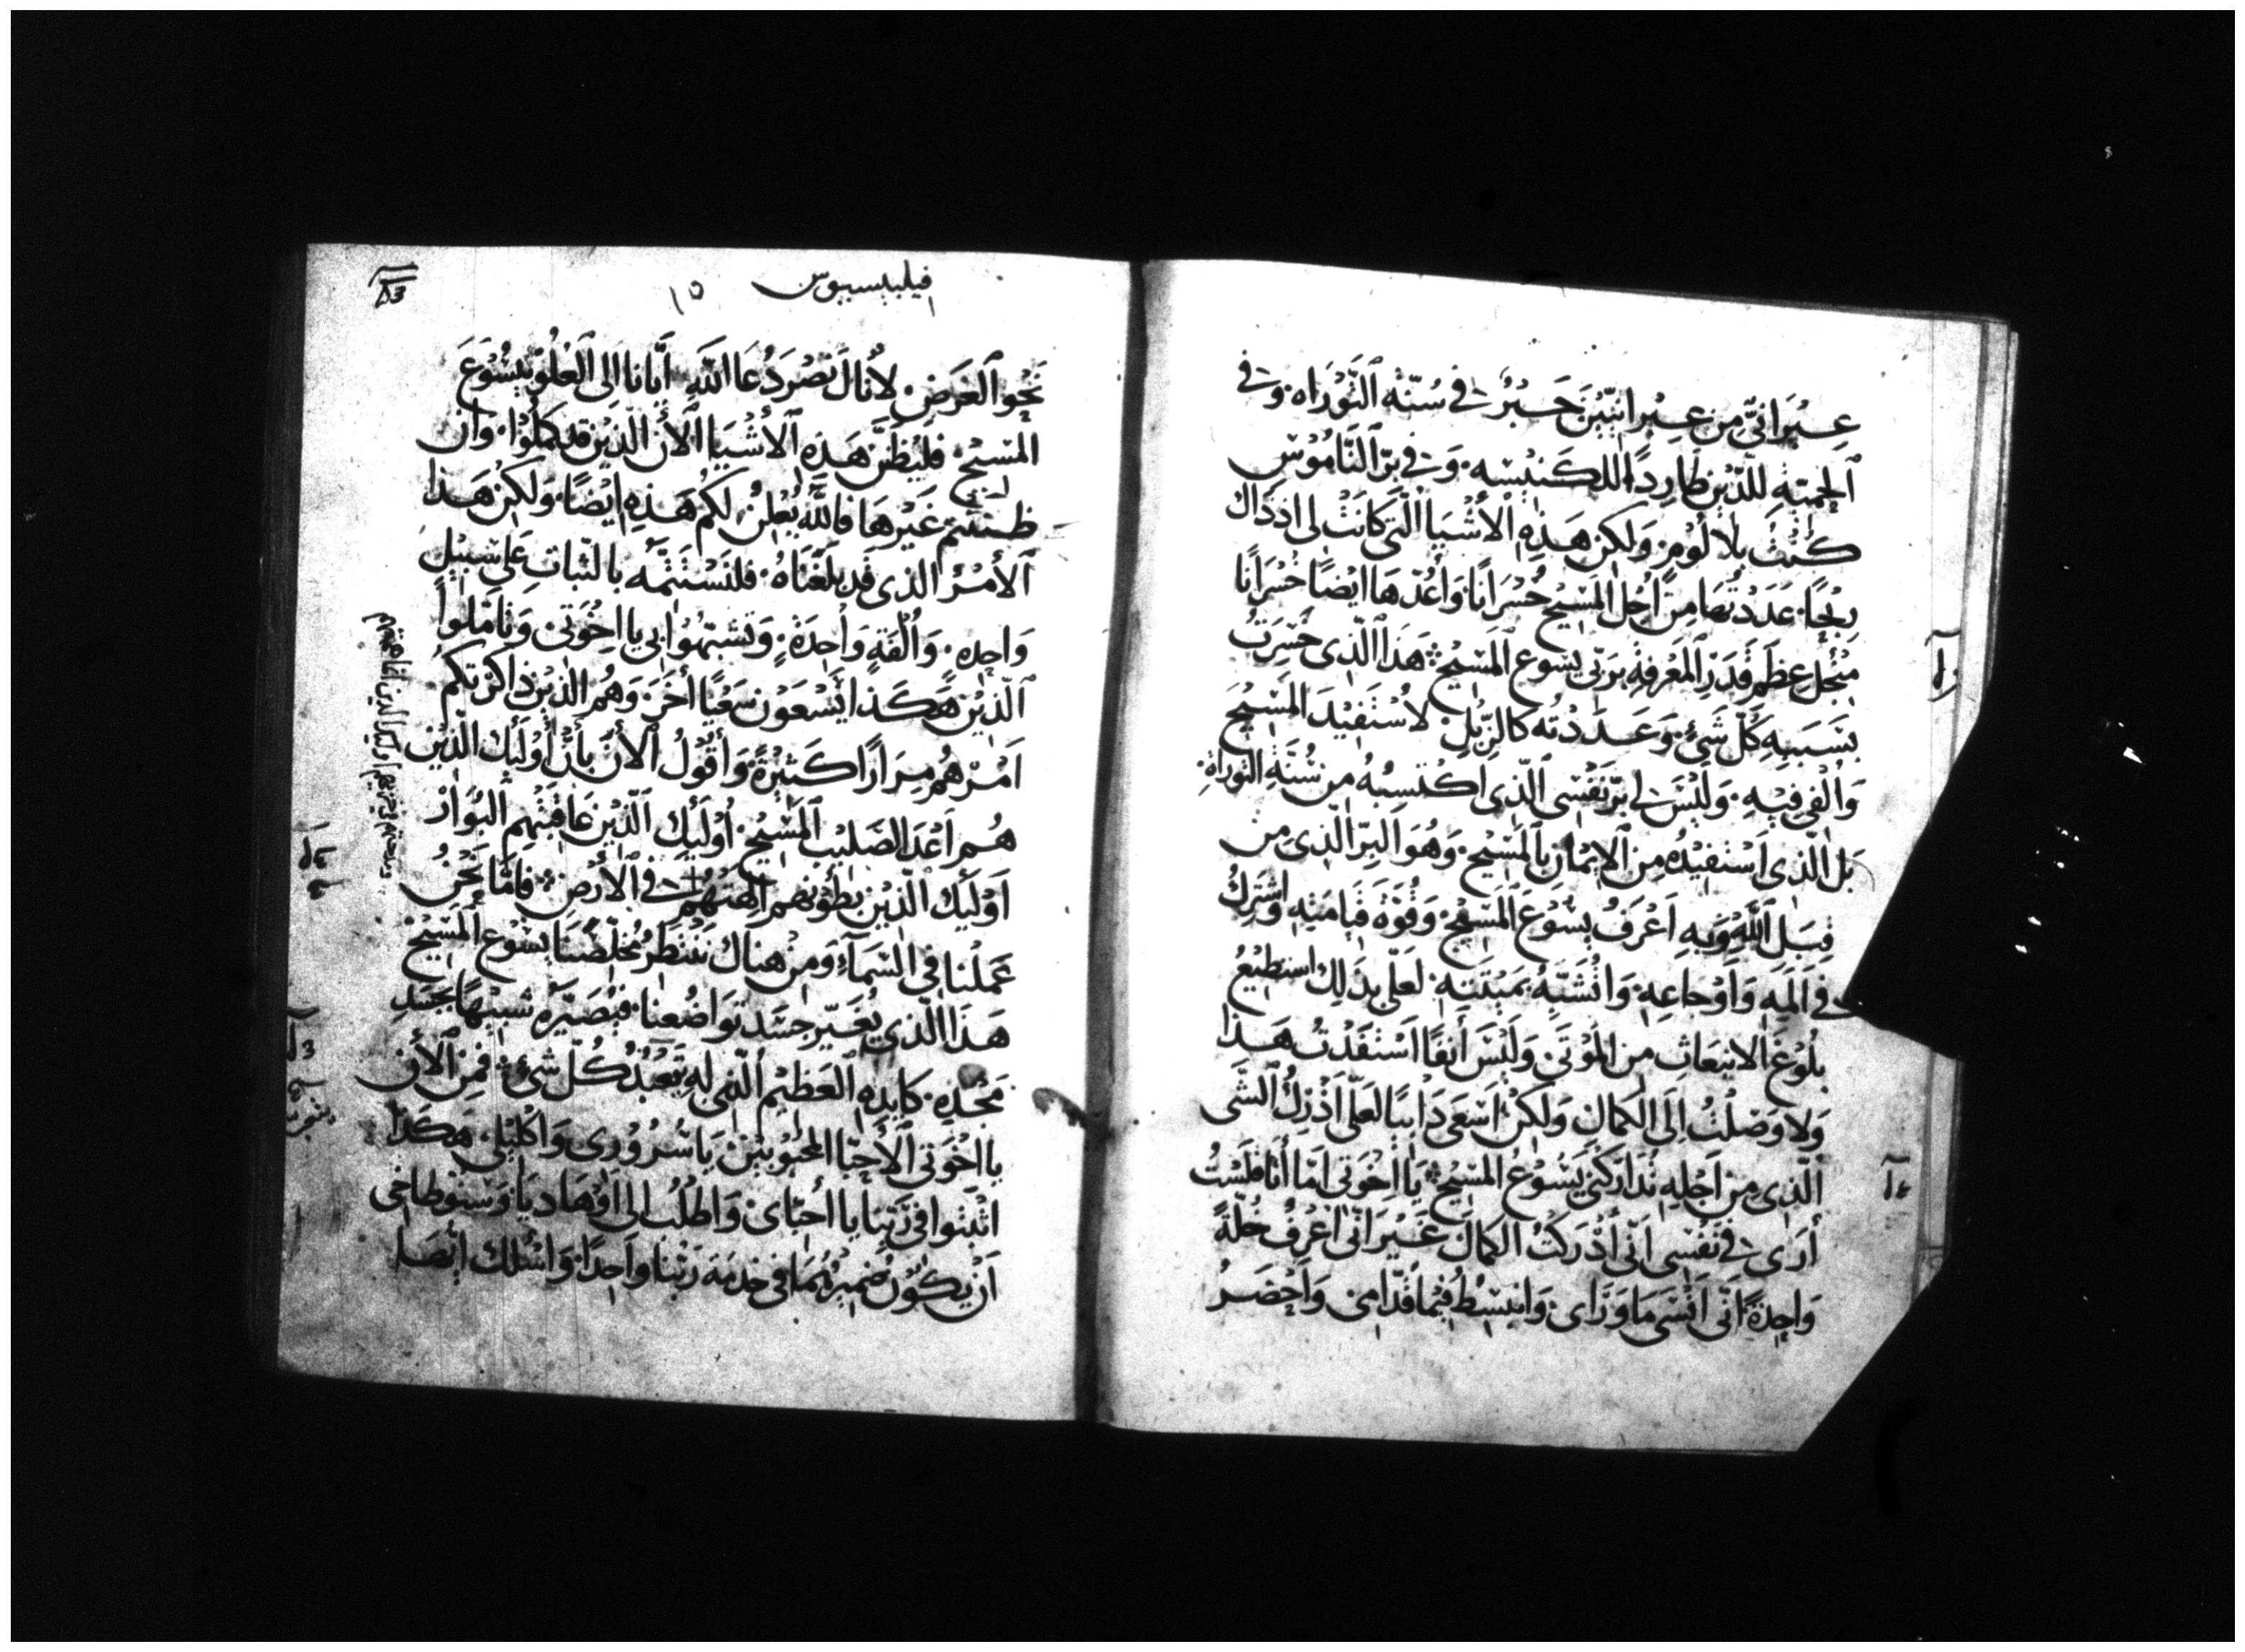 عِبْرَانيّ مِن عِبْرانيّين حَبْرٌ في سُنّة التَّوْرَاه. وَفي
الحميّة للدّين طَارِدًا للكَنيْسه. وَفي برّ النّامُوْس
كُنْتُ بلا لَوْمٍ. وَلكن هَذِهِ الأشْيَا الّتي كانَتْ لي اذذَاكَ
رِبْحًا. عَدَدْتُهَا مِن اجْل المَسِيْح خُسْرَانًا. وَأعُدّهَا ايْضًا خُسْرَانًا
مِنْجل عظم قَدْرِ المَعْرِفةِ بربّي يسُوع المَسيْح ❊ هَذا الّذِي خَسِرتُ
بسَبَبِهِ كُلّ شَيْءٍ. وَعَدَدْتُه كالزّبْل. لاسْتفيْدَ المَسيْحَ
وَألْفى فِيْهِ. وَلَيْسَ لي برّ نَفْسي الّذِي اكْتسبُهُ من سُنّةِ التّوراة.
بَل الّذي اسْتَفيْدُه مِن الايْمان بالمَسيْح. وَهُوَ البِرّ الّذِي من
قِبَل اللّهِ وَبهِ اعْرَفُ يسُوْعَ المَسيْح. وَقُوّةَ قيَامَتِهِ واشْتركُ
في المِهِ وَأوْجاعِهِ. وَاتْشَبّهُ بمَيْتَتِهِ. لعَلّي بذَلِكَ اسْتطيْعُ
بلُوْغَ الانبعَاثِ من المَوْتَى. وَلَيْسَ أنفًا اسْتَفَدْتُ هَذا
وَلا وَصَلْتُ اِلَى الكَمَالِ. وَلكنْ اسْعَى دَايبًا لعَلّي اُدْرِكُ الشّي
الّذِي من اجْلِهِ تدَاركَني يَسُوْعُ المَسيْح ❊ يَا اخْوَتي امّا أنَا فلَسْتُ
أرَى في نَفْسي انّي أدْرَكتُ الكمالَ. غَيْرَ انّي اعْرِفُ خَلّةً
وَاحِدَةً. انّي انْسَى مَا وَرَاي. وَانبسِطُ فيْما قُدّامي. وَاحْضِرُ
فيلبيسيوس ١٥
نَحْوَ الغَرَضِ. لأنَالَ نَصْرَ دُعَا اللّهِ أيّانا اِلى العُلُوّ بيسُوعَ
المَسيْح. فليَظنّ هَذِهِ الأشيَا الأن الّذيْن قد كَمُلُوْا. وَان
ظننتم غَيْرهَا فاللّهُ يُعْلنُ لكُم هَذِهِ ايْضًا. وَلكن هَذا
الأمْرُ الذي قَد بَلَغْنَاهُ. فلنَسْتَتِمّه بالثّبات عَلى سَبيْلٍ
وَاحِدِهِ. وَألْفَةٍ وَاحِدَةٍ. وَتشبّهُوْا بي يا اخْوَتي وَتأمّلوا
الّذيْن هَكَذَا يَسْعَوْن سَعْيًا أخَرَ. وَهُم الّذيْن ذاكَرْتكُم
امْرَهُم مِرَارًا كَثيْرَةً. وَأقُوْلُ الأنَ بأنّ أوْلَيِكَ الّذيْن
هُم اعْدَا لصَليْب المَسيْح. أوْلَيِكَ الّذيْن عَاقبَتُهم البَوَارُ
أوْلَيِكَ الّذيْن بُطُوْنهُم الِهَتُهُم في الأرْضِ ❊ فامّا نَحْنُ
عَمَلُنا في السّمَآءِ. وَمِنْ هناكَ نَنْتظِرُ مُخلّصَنَا يسُوْع المَسيْحَ
هَذَا الّذِي يُغَيّر جسَد تَوَاضُعنا. فيُصَيّرُه شبيْهًا بجَسَدِ
مَجْدِهِ. كايدِهِ العَظيْم الّذي لهِ تَعَبّدُ كُلّ شَيْءٍ ❊ فَمِن الأن
يا اخْوَتي الأحِبّا المحْبُوْبيْنَ يَا سُرُوْرِي وَاكْليْلي هَكذا
اثْبتوا في رَبّنا يا أحبّاي. وَاطْلُبُ الى اوْهاديا. وَسنوطاخي
أنْ يكوْنَ ضَميْرُهُمَا في خدمَة رَبّنا واحِدًا. وَاسْئلك ايْضًا